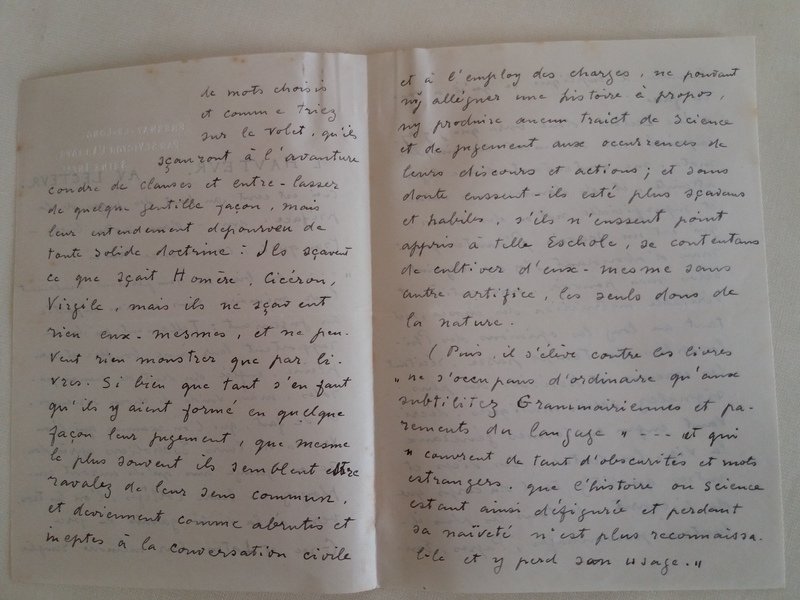 de mots choisis
et comme triez
sur le volet, qu'ils
sçauront à l'avanture
coudre de clauses et entre-lasser
de quelque gentille façon, mais
leur entendement depourveu de
toute solide doctrine : Ils sçavent
ce que sçait Homère, Cicéron,
Virgile, mais ils ne sçavent
rien eux-mesmes, et ne peu-
vent rien monstrer que par li-
vres. Si bien que tant s'en faut
qu'ils y aient formé en quelque
façon leur jugement, que mesme
le plus souvent ils semblent estre
ravalez de leur sens commun,
et deviennent comme abrutis et
ineptes à la conversation civile
et à l'employ des charges, ne pouvant
n'y alléguer une histoire à propos,
n'y produire aucun traict de science
et de jugement aux occurrences de
leurs discours et actions ; et sans
doute eussent-ils esté plus sçavans
et habiles, s'ils n'eussent point
appris à telle Eschole, se contentans
de cultiver d'eux-mesme sans
autre artifice, les seuls dons de
la nature.
(Puis, il s'élève contre les livres
"ne s'occupans d'ordinaire qu'aux
subtilitez Grammairiennes et pa-
rements du langage" --- et qui
"couvrent de tant d'obscurités et mots
estrangers, que l'histoire ou science
estant ainsi défigurée et perdant
sa naïveté n'est plus reconnaissa-
ble et y perd son usage."